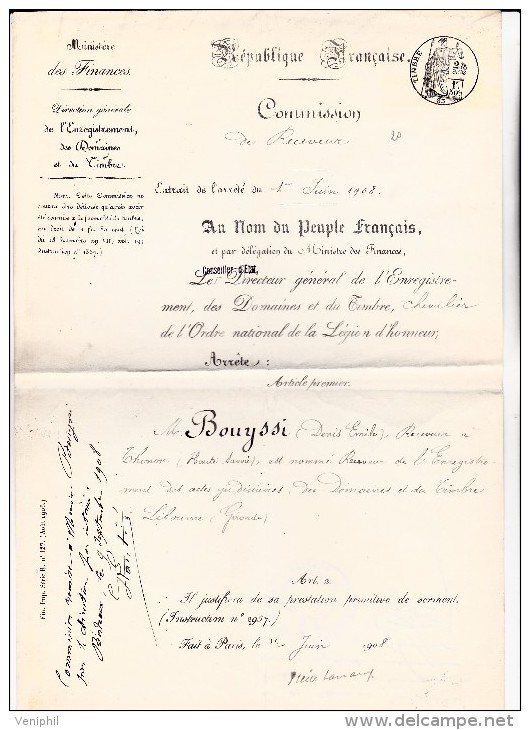 Ministère
des Finances.
Direction générale
de l'Enregistrement,
des Domaines
et du Timbre.
Nota. Cette Commission ne
pourra être délivrée qu'après avoir
République Française.
TIMBRE
Commission
de Receveur
20
Extrait de l'arrêté du 1er Juin 1908.
Au Nom du Peuple Français,
et par délégation du Ministre des Finances,
Conseiller d'Etat,
Le Directeur général de l'Enregistre-
ment, des Domaines et du Timbre, Chevalier
de l'Ordre national de la Légion d'honneur,
Arrête:
Article premier.
M. Bouyssi (Denis Emile), Receveur à
Thonon (Haute Savoie), est nommé Receveur de l'Enregistre-
ment des actes judiciaires, des Domaines et du Timbre
Libourne (Gironde)
Art. 2
Il justifiera de sa prestation primitive de serment.
(Instruction n° 2957.)
Fait à Paris, le 1er Juin 1908
Commission remise à Monsieur Bouyssi
par le directeur
Bordeaux le 9 septembre 1908
Fin. Imp. Série E, n° 127. (Août 1905.)
Veniphil
www.delcampe.net